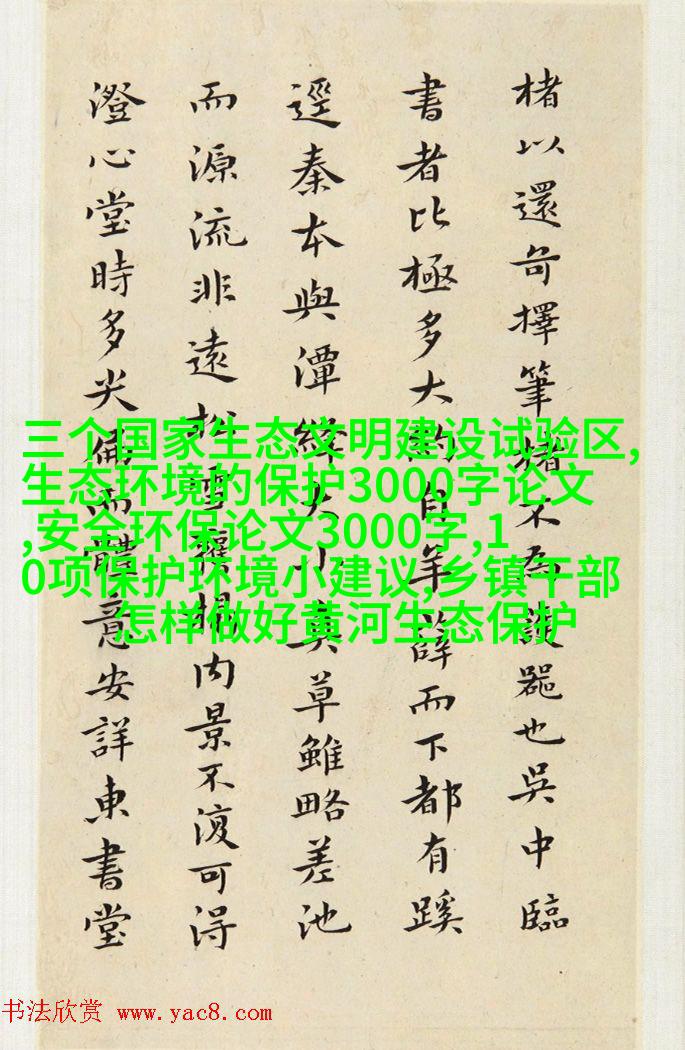 楮以還擇筆楮不為器也吳中臨
書者比極多大約自羊薛而下都有蹊
逕秦本與潭絳大小真草雖略差池
而源流非遠松雪搨內景不復可得
澄心堂時多尖而體意安詳東書堂
三个国家生态文明建设试验区,
生态环境的保护3000字论文
,安全环保论文3000字,1
0项保护环境小建议,乡镇干部
怎样做好黄河生态保护
书法欣赏 www.yac8.com